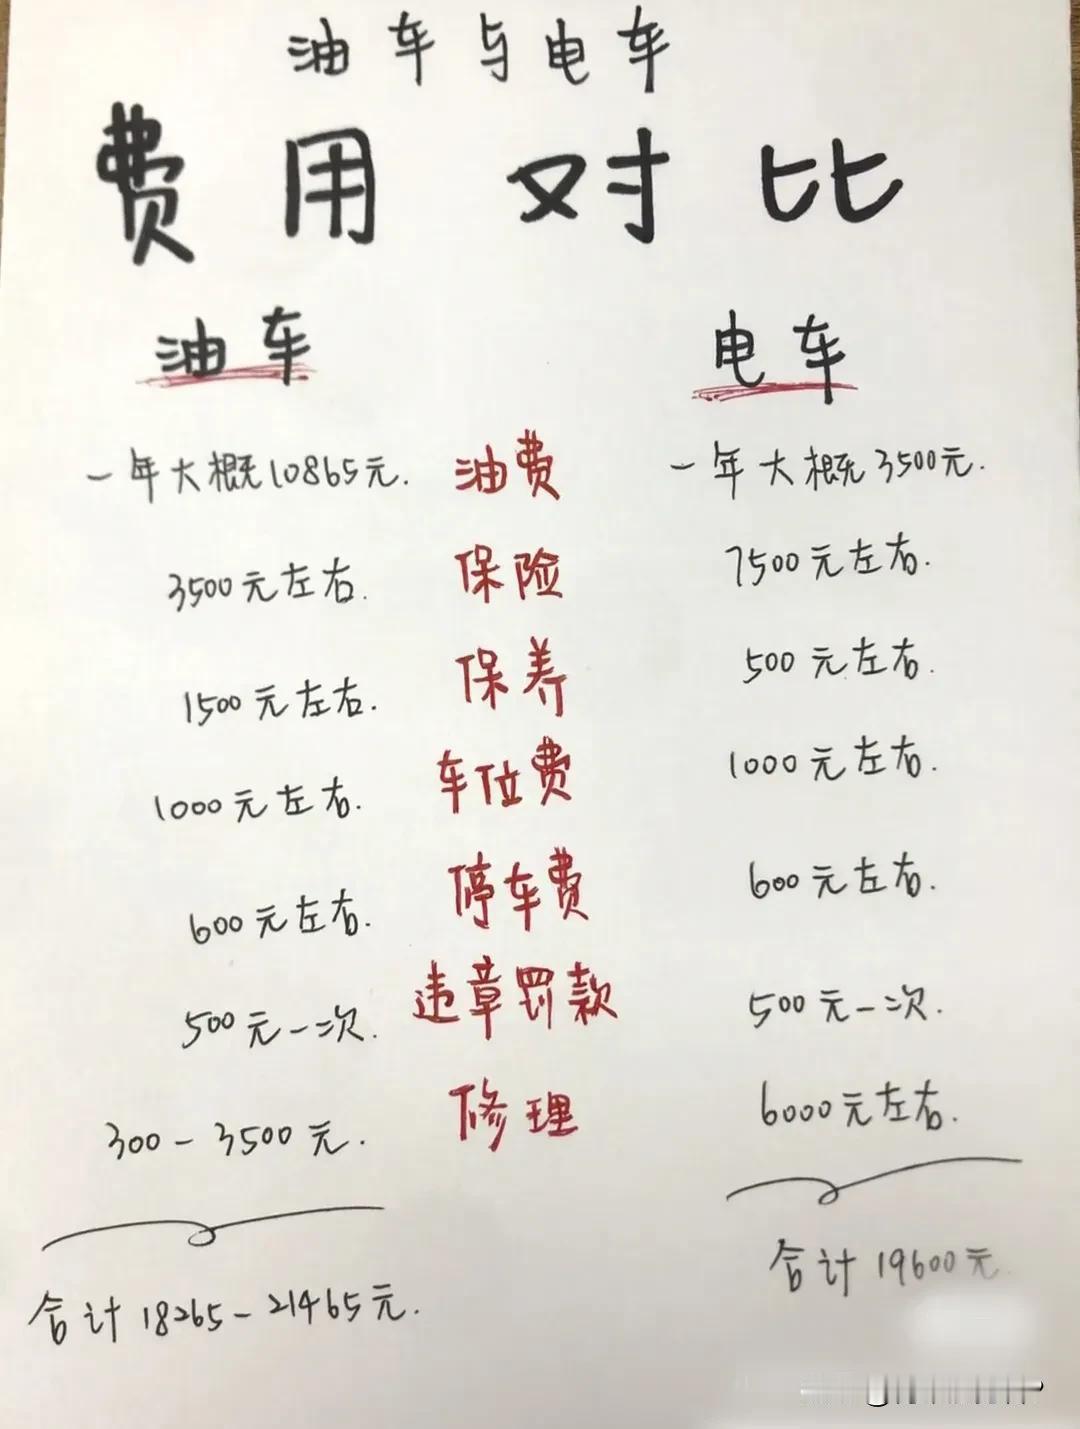 油车与电车
费用对比
油车 电车
一年大概10865元. 油费 一年大概3500元.
3500元左右. 保险 7500元左右.
1500元左右. 保养 500元左右.
1000元左右. 车位费 1000元左右.
600元左右. 停车费 600元左右.
500元一次. 违章罚款 500元一次.
300-3500元. 修理 6000元左右.
合计18265-21465元. 合计19600元